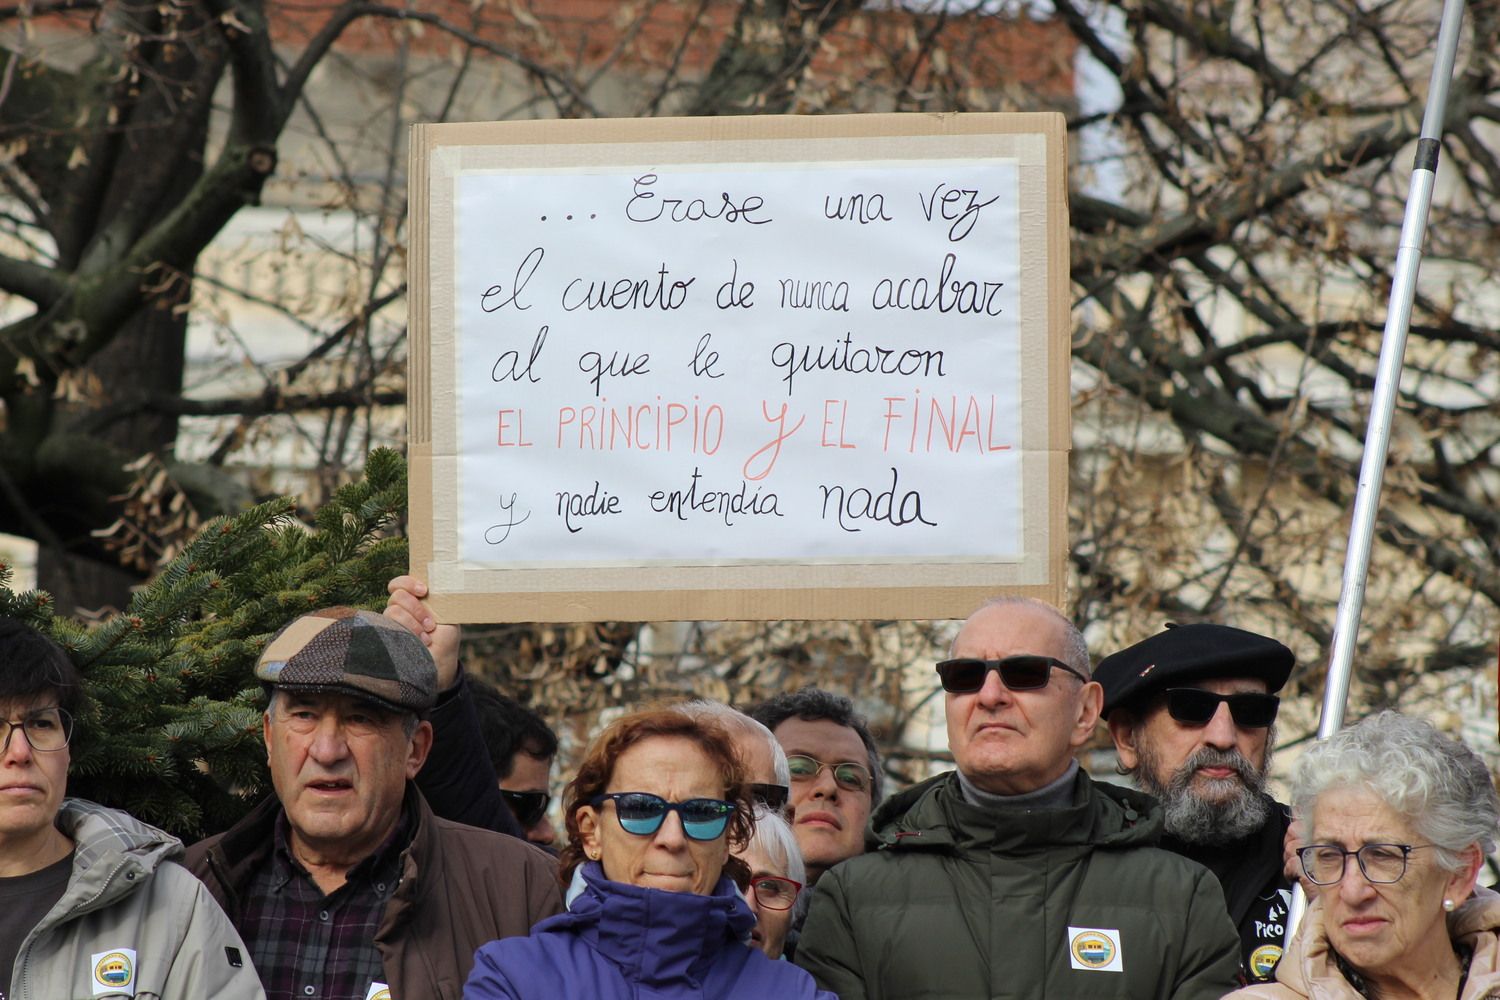 ... Érase una vez
el cuento de nunca acabar
al que le quitaron
EL PRINCIPIO y EL FINAL
y nadie entendía nada
Pico